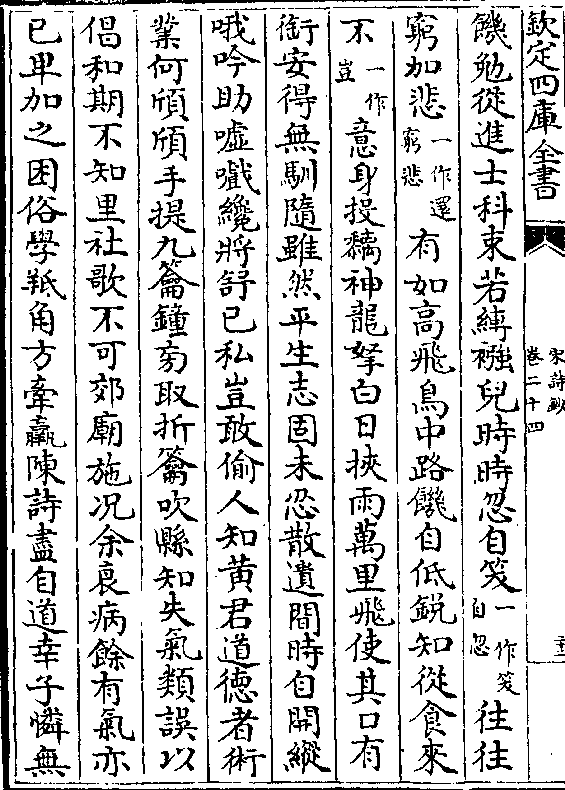 欽定四庫全書
宋詩鈔
卷二十四
饑勉從進士科束若縛襁兒時時忽自笑一作笑自忽往往
窮加悲一作還窮悲有如高飛鳥中路饑自低鋭知從食來
不一作豈意身投羈神龍拏白日挾雨萬里飛使其口有
銜安得無馴隨雖然平生志固未忍散遺間時自開縱
哦吟助嘘嚱纔將舒已私豈敢偷人知黄君道德者術
業何頎頎手提九籥鐘旁取折籥吹縣知失氣類誤以
倡和期不知里社歌不可郊廟施况余衰病餘有氣亦
已卑加之困俗學羝角方牽羸陳詩盡自道幸子憐無